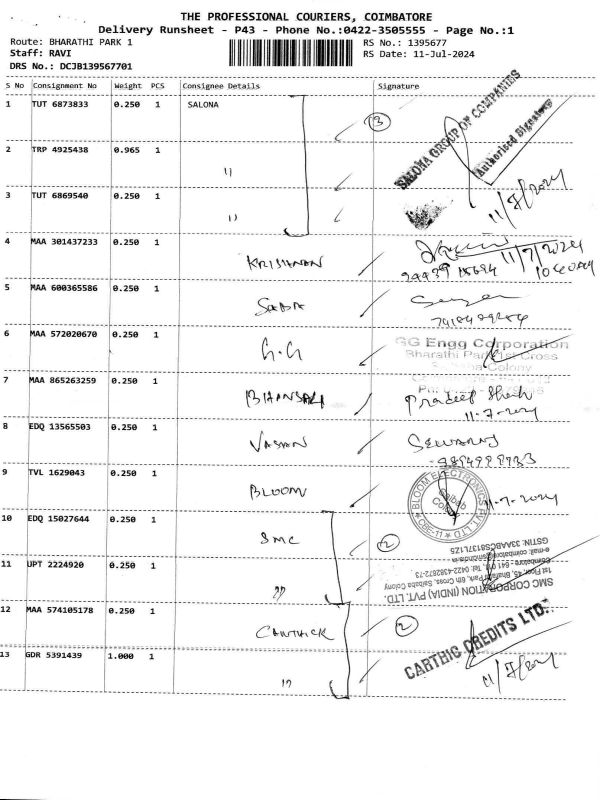 THE PROFESSIONAL COURIERS, COIMBATORE
Delivery Runsheet - P43 - Phone No.:0422-3505555 - Page No.:1
Route: BHARATHI PARK 1 RS No.: 1395677
Staff: RAVI RS Date: 11-Jul-2024
DRS No.: DCJB139567701
S No Consignment No Weight PCS Consignee Details Signature
1 TUT 6873833 0.250 1 SALONA 3 SALONA GROUP OF COMPANIES
Authorised Signatory
2 TRP 4925438 0.965 1 "
3 TUT 6869540 0.250 1 " 11/7/2024
4 MAA 301437233 0.250 1 KRISHNAN 11/7/2024
5 MAA 600365586 0.250 1
6 MAA 572020670 0.250 1 G.G GG Engg Corporation
Bharathi Park 1st Cross
Colony
7 MAA 865263259 0.250 1 BHANSALI Pradeep
11-7-2024
8 EDQ 13565503 0.250 1 VASAN
9 TVL 1629043 0.250 1 BLOOM BLOOM ELECTRONICS PVT. LTD
11-7-2024
10 EDQ 15027644 0.250 1 SMC 2
11 UPT 2224920 0.250 1 "
SMC CORPORATION (INDIA) PVT. LTD.
1st Floor, 45, Bharathi Park, 6th Cross, Saibaba Colony
12 MAA 574105178 0.250 1 CARTHICK 2 CARTHIC CREDITS LTD.
13 GDR 5391439 1.000 1 " 11/7/2024